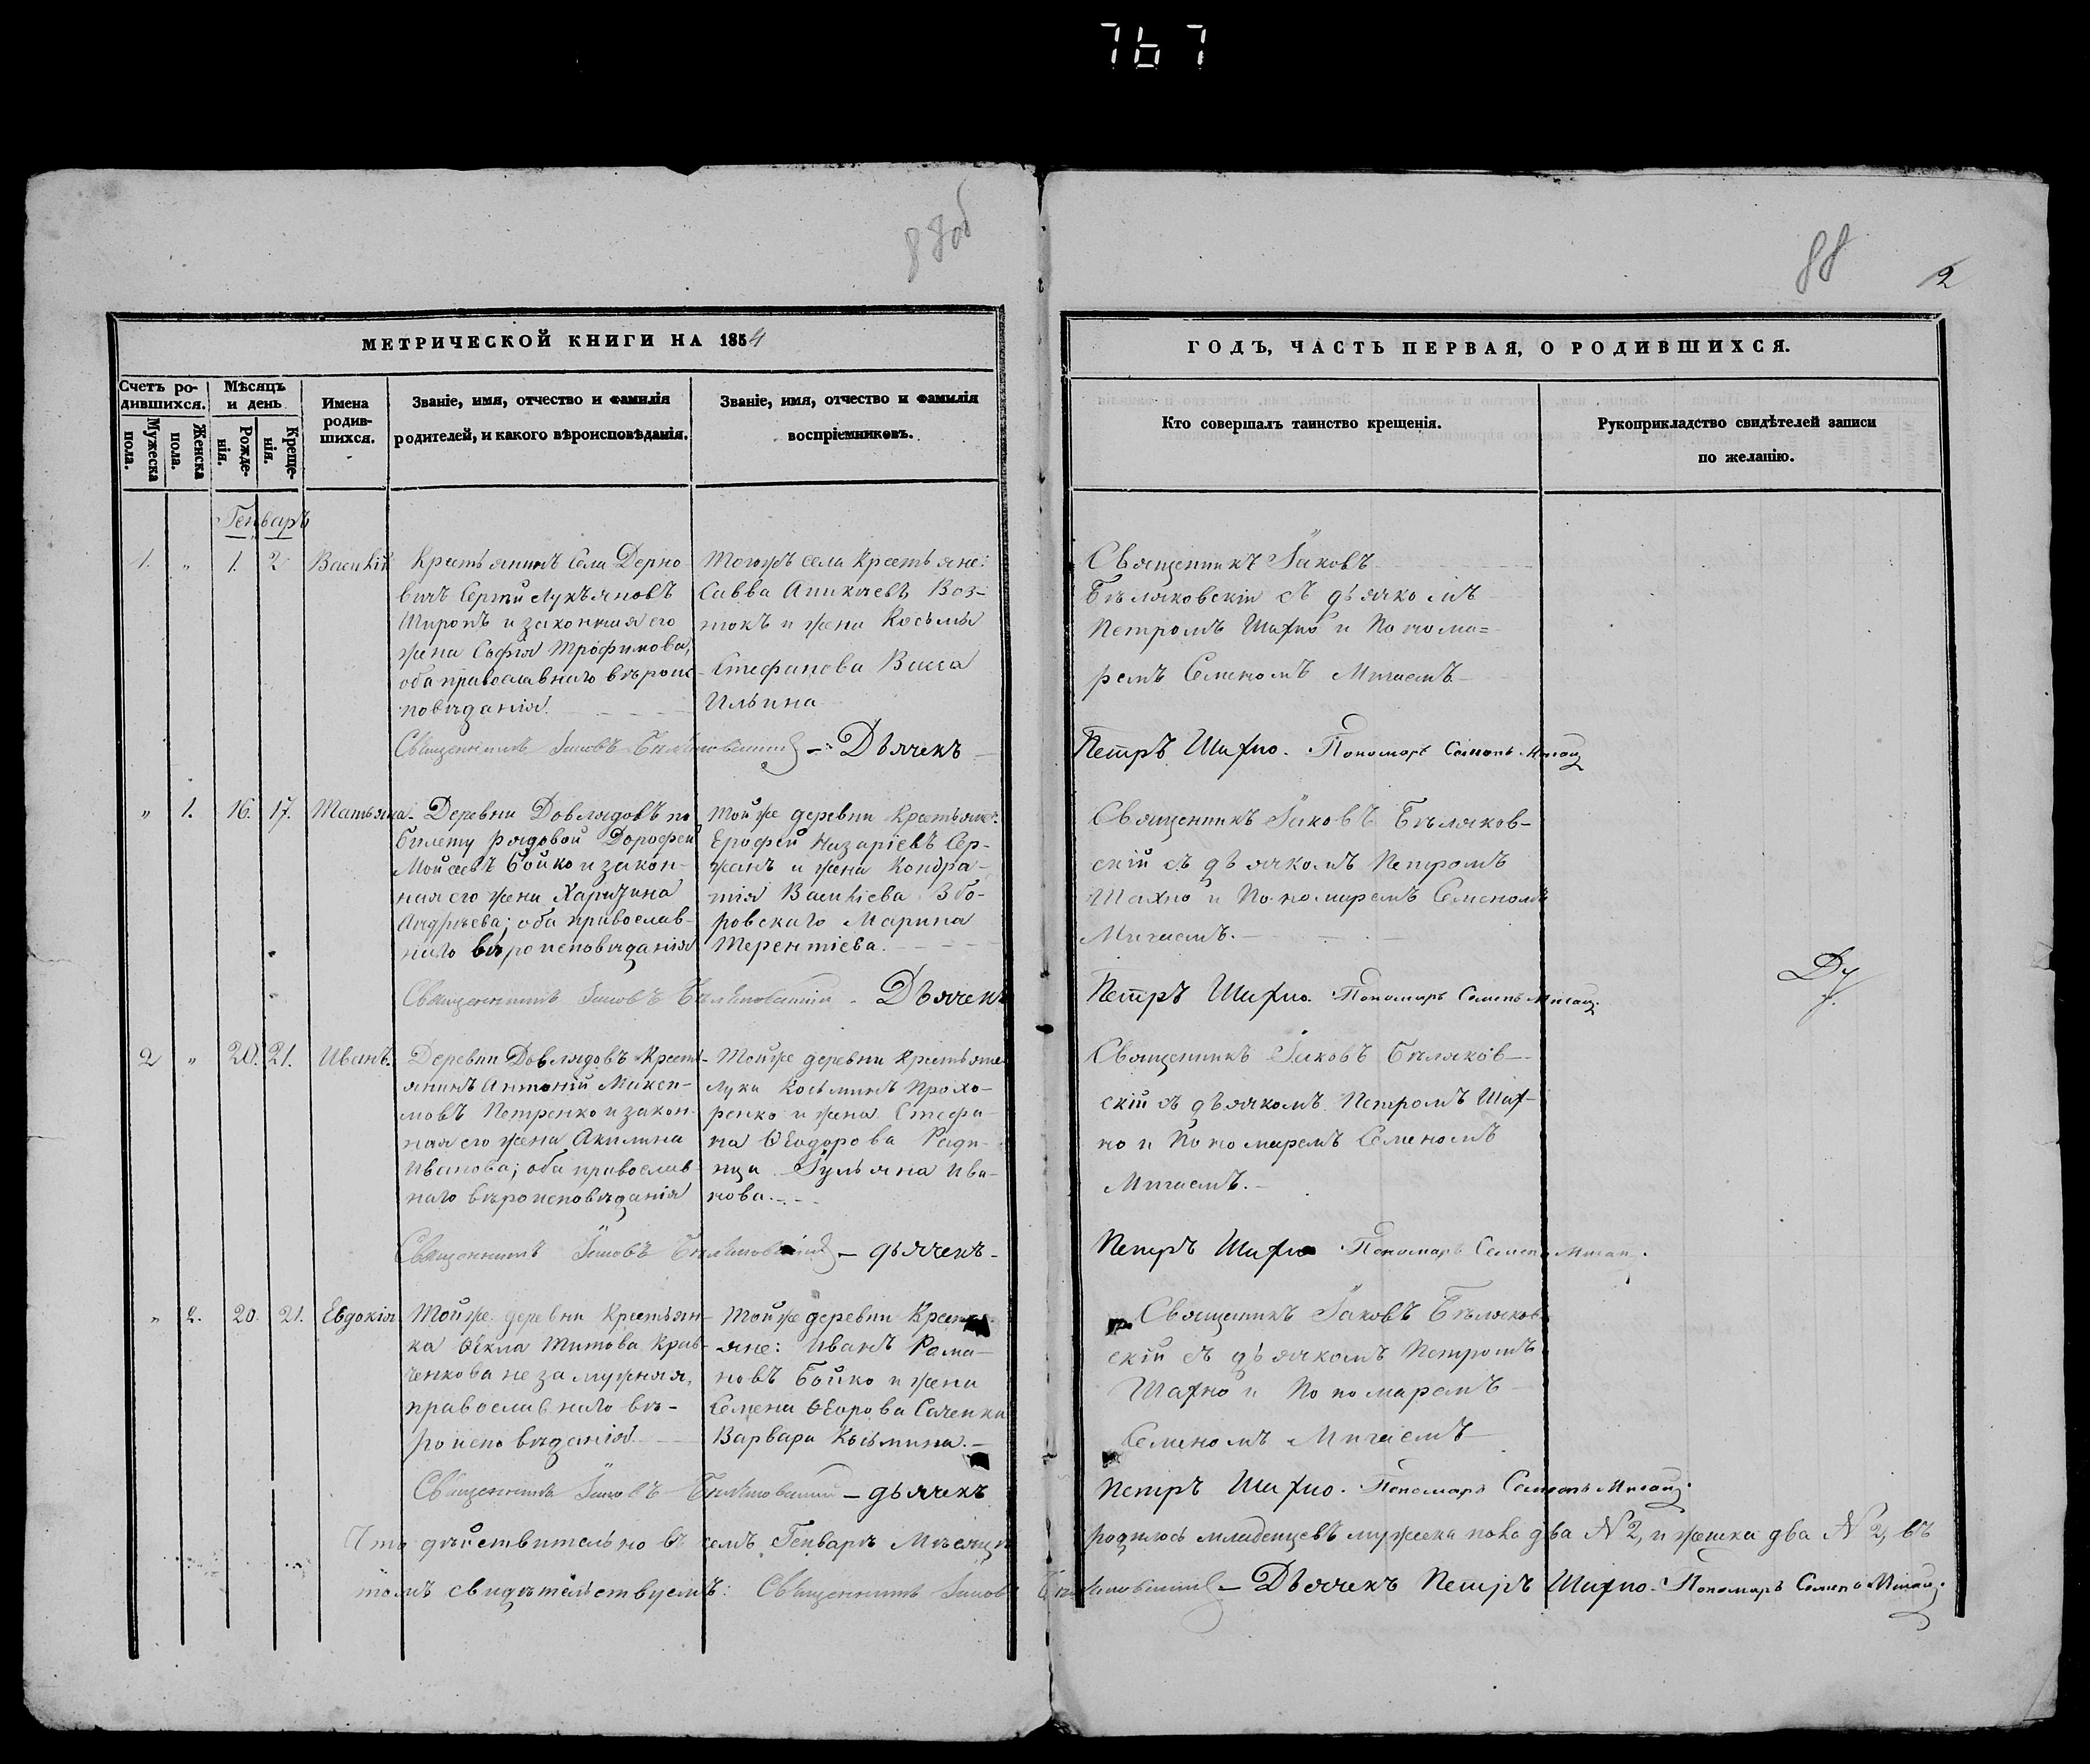 767
88об
88
2
МЕТРИЧЕСКОЙ КНИГИ НА 1854
Счетъ родившихся.
Мужеска пола.
Женска пола.
Мѣсяцъ и день
Рожденія.
Крещенія.
Имена родившихся.
Званіе, имя, отчество и фамилія
родителей, и какого вѣроисповѣданія.
Званіе, имя, отчество и фамилія
воспріемниковъ.
ГОДЪ, ЧАСТЬ ПЕРВАЯ, О РОДИВШИХСЯ.
Кто совершалъ таинство крещенія.
Рукоприкладство свидѣтелей записи
по желанію.
Генварь
1. " 1. 2 Василій
Крестьянинъ Села Дерно
вичъ Сергій Лукъяновъ
Широпъ и законная его
жена Софія Трофимова,
оба православнаго вѣроис
повѣданія.
Тогожъ села Крестьяне:
Савва Аникіевъ Воз-
и жена Косьмы
Стефанова Васса
Ильина
Священникъ Іаковъ
Бѣляковскій съ дьячкомъ
Петромъ Шахно и Понома=
ремъ Семеномъ Мигаемъ
Священникъ Іаковъ Бѣляковскій - Дьячекъ
Петръ Шахно. Пономарь Семенъ Мигай
" 1. 16. 17. Татьяна.
Деревни Довлядовъ по
билету рядовой Дорофей
Мойсеевъ Бойко и закон-
ная его жена Харитина
Андреева; оба православ-
наго вѣроисповѣданія
Тойже деревни Крестьяне:
Ерофей Назаріевъ Сер-
жанъ и жена Кондра-
тія Василіева Збо-
ровскаго Марина
Терентіева.
Священникъ Іаковъ Бѣляков-
скій съ дьячкомъ Петромъ
Шахно и Пономаремъ Семеномъ
Мигаемъ.
Священникъ Іаковъ Бѣляковскій - Дьячекъ
Петръ Шахно. Пономарь Семенъ Мигай.
2 " 20. 21. Иванъ.
Деревни Довлядовъ Кресть-
янинъ Антоній Макси-
мовъ Петренко и закон-
ная его жена Акилина
Иванова; оба православ-
наго вѣроисповѣданія
Тойже деревни Крестьяне
Лука Косьминъ Прохо-
ренко и жена Стефа-
на Ѳеодорова Ради-
нца Іульяна Ива-
нова.
Священникъ Іаковъ Бѣляков-
скій съ дьячкомъ Петромъ Шах-
но и Пономаремъ Семеномъ
Мигаемъ.
Священникъ Іаковъ Бѣляковскій - дьячекъ -
Петръ Шахно Пономарь Семенъ Мигай.
" 2. 20. 21. Евдокія
Тойже деревни Крестьян-
ка Ѳекла Титова Крав-
ченкова не замужняя,
православнаго вѣ-
роисповѣданія.
Тойже деревни Кресть-
яне: Иванъ Рома-
новъ Бойко и жена
Семена Ѳеорова Саченка
Варвара Косьмина.
Священникъ Іаковъ Бѣляков
скій съ дьячкомъ Петромъ
Шахно и Пономаремъ
Семеномъ Мигаемъ
Священникъ Іаковъ Бѣляковскій - дьячекъ
Петръ Шахно. Пономарь Семенъ Мигай.
Что дѣйствительно въ семъ Генварѣ Мѣсяцѣ родилось младенцевъ мужеска пола два N 2, и женска два N 2, въ
томъ свидѣтельствуемъ: Священникъ Іаковъ Бѣляковскій - Дьячекъ Петръ Шахно. Пономарь Семенъ Мигай.